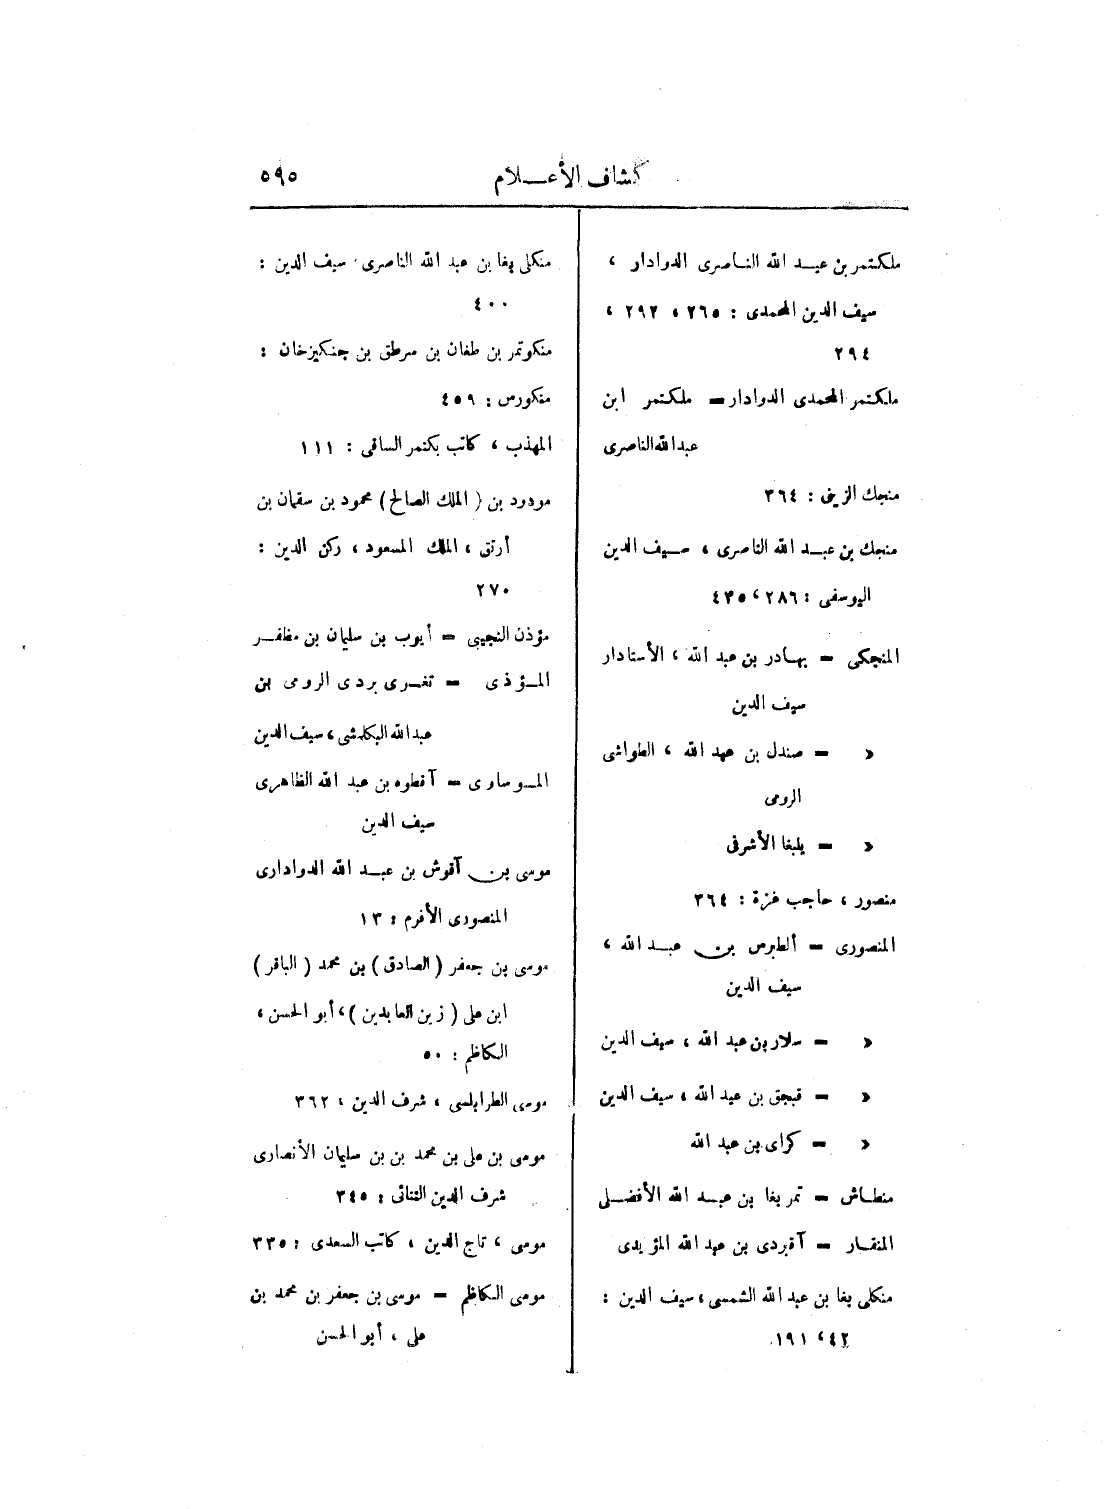 كشاف الأعلام ٥٩٥
ملكتمر بن عبد الله الناصرى الدوادار ،
سيف الدين المحمدى : ٢٦٥ ، ٢٩٢ ،
٢٩٤
ملكتمر المحمدى الدوادار = ملكتمر ابن
عبد الله الناصرى
منجك الزينى : ٣٦٤
منجك بن عبد الله الناصرى ، سيف الدين
اليوسفى : ٢٨٦ ، ٤٣٥
المنجكى = بهادر بن عبد الله ، الأستادار
سيف الدين
» = صندل بن عبد الله ، الطواشى
الرومى
» = يلبغا الأشرفى
منصور ، حاجب غزة : ٣٦٤
المنصورى = ألطبرس بن عبد الله ،
سيف الدين
» = سلار بن عبد الله ، سيف الدين
» = قبجق بن عبد الله ، سيف الدين
» = كراى بن عبد الله
منطاش = تمر بغا بن عبد الله الأفضلى
المنقار = آقبردى بن عبد الله المؤيدى
منكلى بغا بن عبد الله الشمسى ، سيف الدين :
٤٢ ، ١٩١
منكلى بغا بن عبد الله الناصرى سيف الدين :
٤٠٠
منكوتمر بن طغان بن سرطق بن جنكيزخان :
منكورس : ٤٥٩
المهذب ، كاتب بكتمر الساقى : ١١١
مودود بن ( الملك الصالح ) محمود بن سقمان بن
أرتق ، الملك المسعود ، ركن الدين :
٢٧٠
مؤذن النجيبى = أيوب بن سليمان بن مظفر
المؤذى = تغرى بردى الرومى بن
عبد الله البكلمشى ، سيف الدين
الموساوى = آقطوه بن عبد الله الظاهرى
سيف الدين
موسى بن آقوش بن عبد الله الدوادارى
المنصورى الأفرم : ١٣
موسى بن جعفر ( الصادق ) بن محمد ( الباقر )
ابن على ( زين العابدين ) ، أبو الحسن ،
الكاظم : ٥٠
موسى الطرابلسى ، شرف الدين ، ٣٦٢
موسى بن على بن محمد بن بن سليمان الأنصارى
شرف الدين التتائى : ٣٤٥
موسى ، تاج الدين ، كاتب السعدى : ٣٣٥
موسى الكاظم = موسى بن جعفر بن محمد بن
على ، أبو الحسن